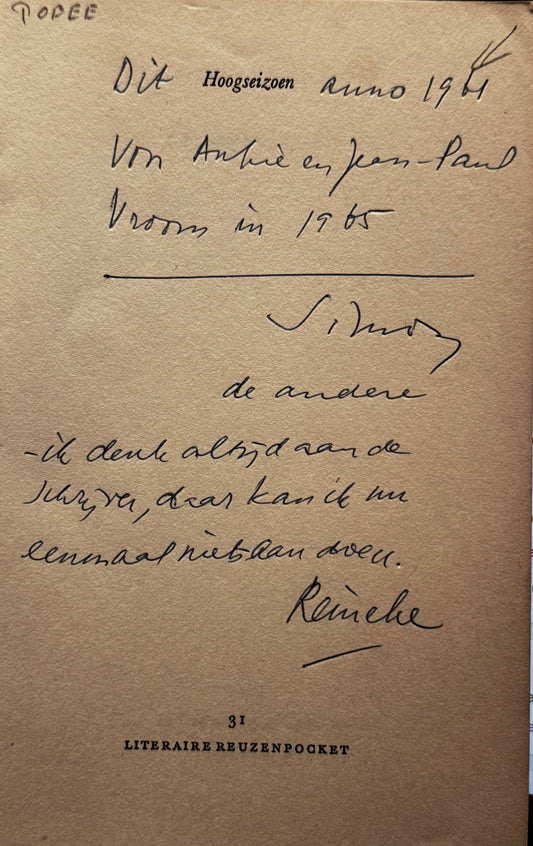 TOPEE
Dit Hoogseizoen anno 1961
Von Ankie en Jean-Paul
Vroom in 1965
Simon
de andere
-ik denk altijd aan de
schrijver, daar kan ik nu
eenmaal niets aan doen.
Reineke
31
LITERAIRE REUZENPOCKET